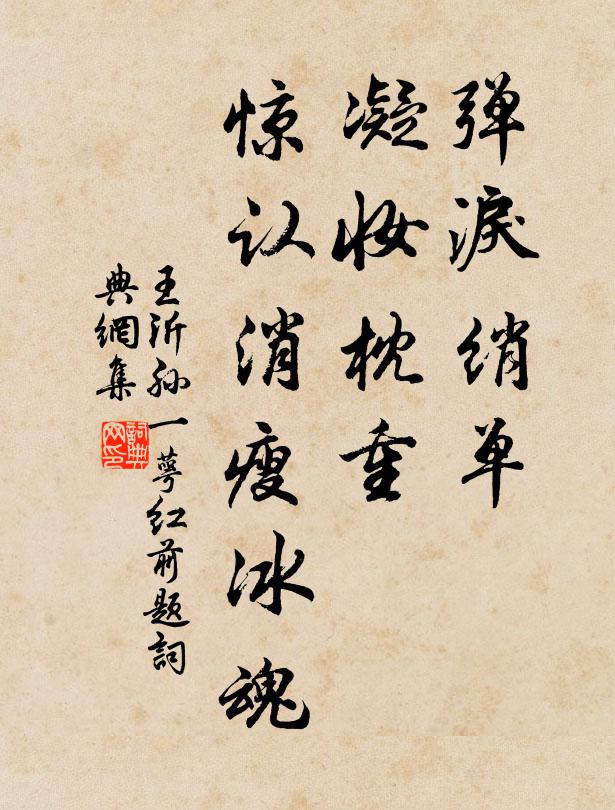 弹淚绡单
凝妆枕重
惊认消瘦冰魂
王沂孙一萼红前题詞
典網集
詞典网印